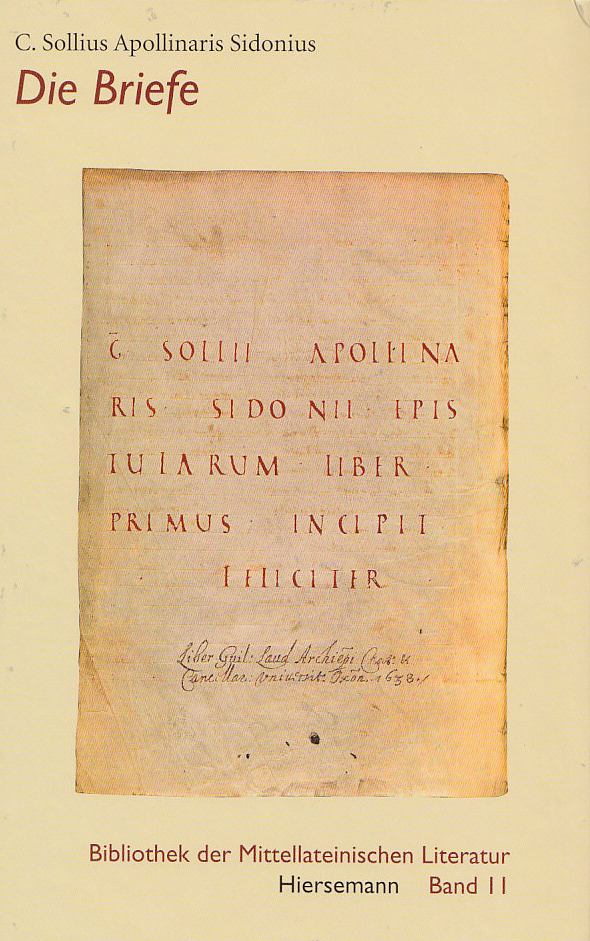 C. Sollius Apollinaris Sidonius
Die Briefe
C̄ SOLLII APOLLINA
RIS · SIDONII · EPIS
TULARUM · LIBER ·
PRIMUS · INCIPIT
FELICITER
Liber Guil: Laud Archiep̄i Cant: &
Cancellar. Vniuersit: Oxōn. 1638.
Bibliothek der Mittellateinischen Literatur
Hiersemann Band 11